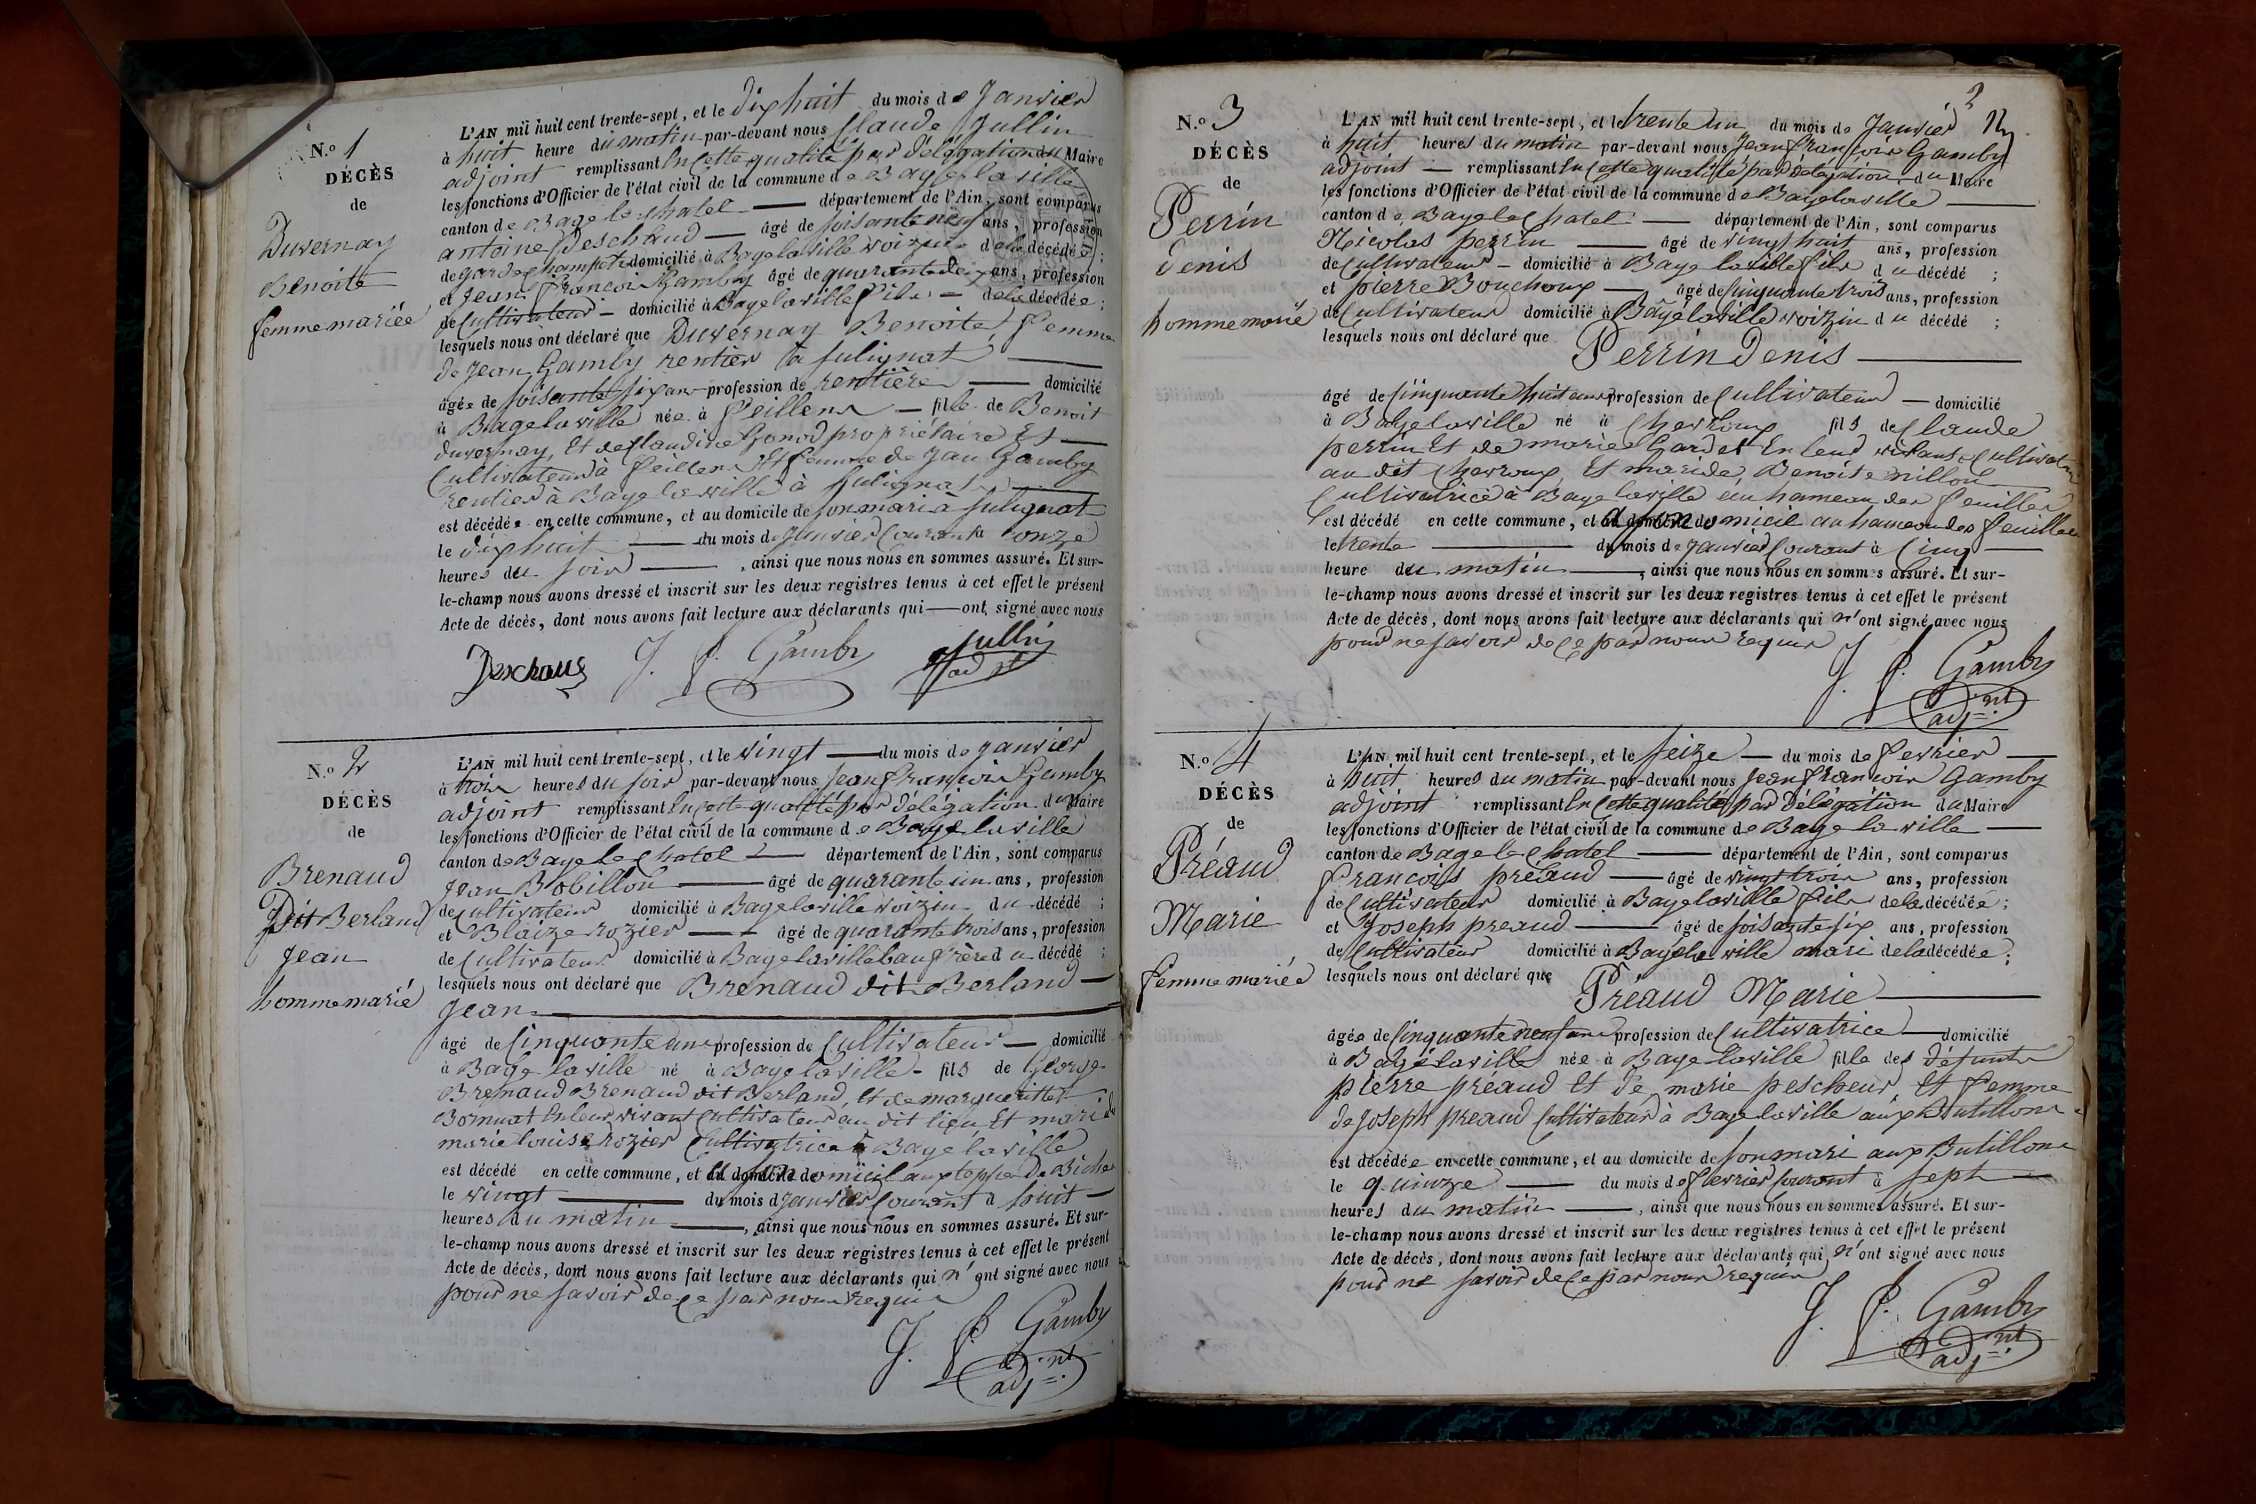 N.o 1
DÉCÈS
de
Duvernay
Benoite
femme mariée
L'AN mil huit cent trente-sept, et le dix huit du mois de Janvier
à huit heure du matin par-devant nous Claude Jullin
adjoint remplissant en cette qualité par délégation du Maire
les fonctions d'Officier de l'état civil de la commune de Bagé la ville
canton de Bagé le chatel — département de l'Ain, sont comparus
antoine Deschaud — âgé de soisante neuf ans, profession
de garde champetre domicilié à Bagé la ville voizin de la décédée ;
et Jean françois Gamby âgé de quarante deux ans, profession
de Cultivateur — domicilié à Bagé la ville fils — de la décédée ;
lesquels nous ont déclaré que Duvernay Benoite, femme
de Jean Gamby rentier à fulignat —
âgée de soisante six ans profession de rentière — domicilié
à Bagé la ville née à feillens — fille de Benoit
duvernay, Et de Claudine Gonod propriétaire Et —
Cultivateur à feillens Et femme de Jean Gamby
rentier à Bagé la ville à fulignat —
est décédée en cette commune, et au domicile de son mari à fulignat
le dix huit — du mois de Janvier courant à onze
heures du soir — , ainsi que nous nous en sommes assuré. Et sur-
le-champ nous avons dressé et inscrit sur les deux registres tenus à cet effet le présent
Acte de décès, dont nous avons fait lecture aux déclarants qui — ont signé avec nous
Deschaus J. f. Gamby Jullin
adjt
N.o 2
DÉCÈS
de
Brenaud
Dit Berland
Jean
homme marié
L'AN mil huit cent trente-sept, et le vingt — du mois de janvier
à trois heures du soir par-devant nous Jean françois Gamby
adjoint remplissant en cette qualité par délégation du Maire
les fonctions d'Officier de l'état civil de la commune de Bagé la ville
canton de Bagé le chatel — département de l'Ain, sont comparus
Jean Bobillon — âgé de quarante un ans, profession
de cultivateur domicilié à Bagé la ville voizin du décédé ;
et Blaize rozier — âgé de quarante trois ans, profession
de Cultivateur domicilié à Bagé la ville bau frère du décédé ;
lesquels nous ont déclaré que Brenaud dit Berland —
Jean —
âgé de Cinquante ans profession de Cultivateur — domicilié
à Bagé la ville né à Bagé la ville — fils de George
Brenaud Brenaud dit Berland, Et de margueritte
Bornuat En leur vivant Cultivateur au dit lieu, Et mari de
marie louise rozier Cultivatrice à Bagé la ville
est décédé en cette commune, et à son domicil aux
le vingt — du mois de janvier courant à huit —
heures du matin — , ainsi que nous nous en sommes assuré. Et sur-
le-champ nous avons dressé et inscrit sur les deux registres tenus à cet effet le présent
Acte de décès, dont nous avons fait lecture aux déclarants qui n'ont signé avec nous
pour ne savoir de ce par nous requis
J. f. Gamby
adj.nt
2
N.o 3
DÉCÈS
de
Perrin
Denis
homme marié
L'AN mil huit cent trente-sept, et le trente un du mois de Janvier
à huit heures du matin par-devant nous Jean françois Gamby
adjoint — remplissant en cette qualité par délégation du Maire
les fonctions d'Officier de l'état civil de la commune de Bagé la ville —
canton de Bagé le chatel — département de l'Ain, sont comparus
Nicolas perrin — âgé de vingt huit ans, profession
de Cultivateur — domicilié à Bagé la ville fils du décédé ;
et pierre Bouchoux — âgé de Cinquante trois ans, profession
de Cultivateur domicilié à Bagé la ville voizin du décédé ;
lesquels nous ont déclaré que
Perrin Denis —
âgé de Cinquante huit ans profession de Cultivateur — domicilié
à Bagé la ville né à Chevroux fils de Claude
perrin Et de marie Gardet En leur vivant Cultivateur
au dit Chevroux, Et mari de Benoite nillon
Cultivatrice à Bagé la ville au hameau des feuilles
est décédé en cette commune, et à son domicil au hameau des feuilles
le trente — du mois de janvier courant à Cinq —
heure du matin — , ainsi que nous nous en sommes assuré. Et sur-
le-champ nous avons dressé et inscrit sur les deux registres tenus à cet effet le présent
Acte de décès, dont nous avons fait lecture aux déclarants qui n'ont signé avec nous
pour ne savoir de ce par nous requis
J. f. Gamby
adj.nt
N.o 4
DÉCÈS
de
Préaud
Marie
femme mariée
L'AN mil huit cent trente-sept, et le seize — du mois de fevrier —
à huit heures du matin par-devant nous Jean françois Gamby
adjoint remplissant en cette qualité par délégation du Maire
les fonctions d'Officier de l'état civil de la commune de Bagé la ville —
canton de Bagé le chatel — département de l'Ain, sont comparus
François préaud — âgé de vingt trois ans, profession
de Cultivateur domicilié à Bagé la ville fils de la décédée ;
et Joseph preaud — âgé de soisante six ans, profession
de Cultivateur domicilié à Bagé la ville mari de la décédée ;
lesquels nous ont déclaré que
Préaud Marie —
âgée de Cinquante neuf ans profession de Cultivatrice — domicilié
à Bagé la ville née à Bagé la ville fille des défunts
pierre préaud Et de marie pescheur Et femme
de Joseph preaud Cultivateur à Bagé la ville aux Butillons
est décédée en cette commune, et au domicile de son mari aux Butillons
le quinze — du mois de fevrier courant à sept —
heures du matin — , ainsi que nous nous en sommes assuré. Et sur-
le-champ nous avons dressé et inscrit sur les deux registres tenus à cet effet le présent
Acte de décès, dont nous avons fait lecture aux déclarants qui n'ont signé avec nous
pour ne savoir de ce par nous requis
J. f. Gamby
adj.nt